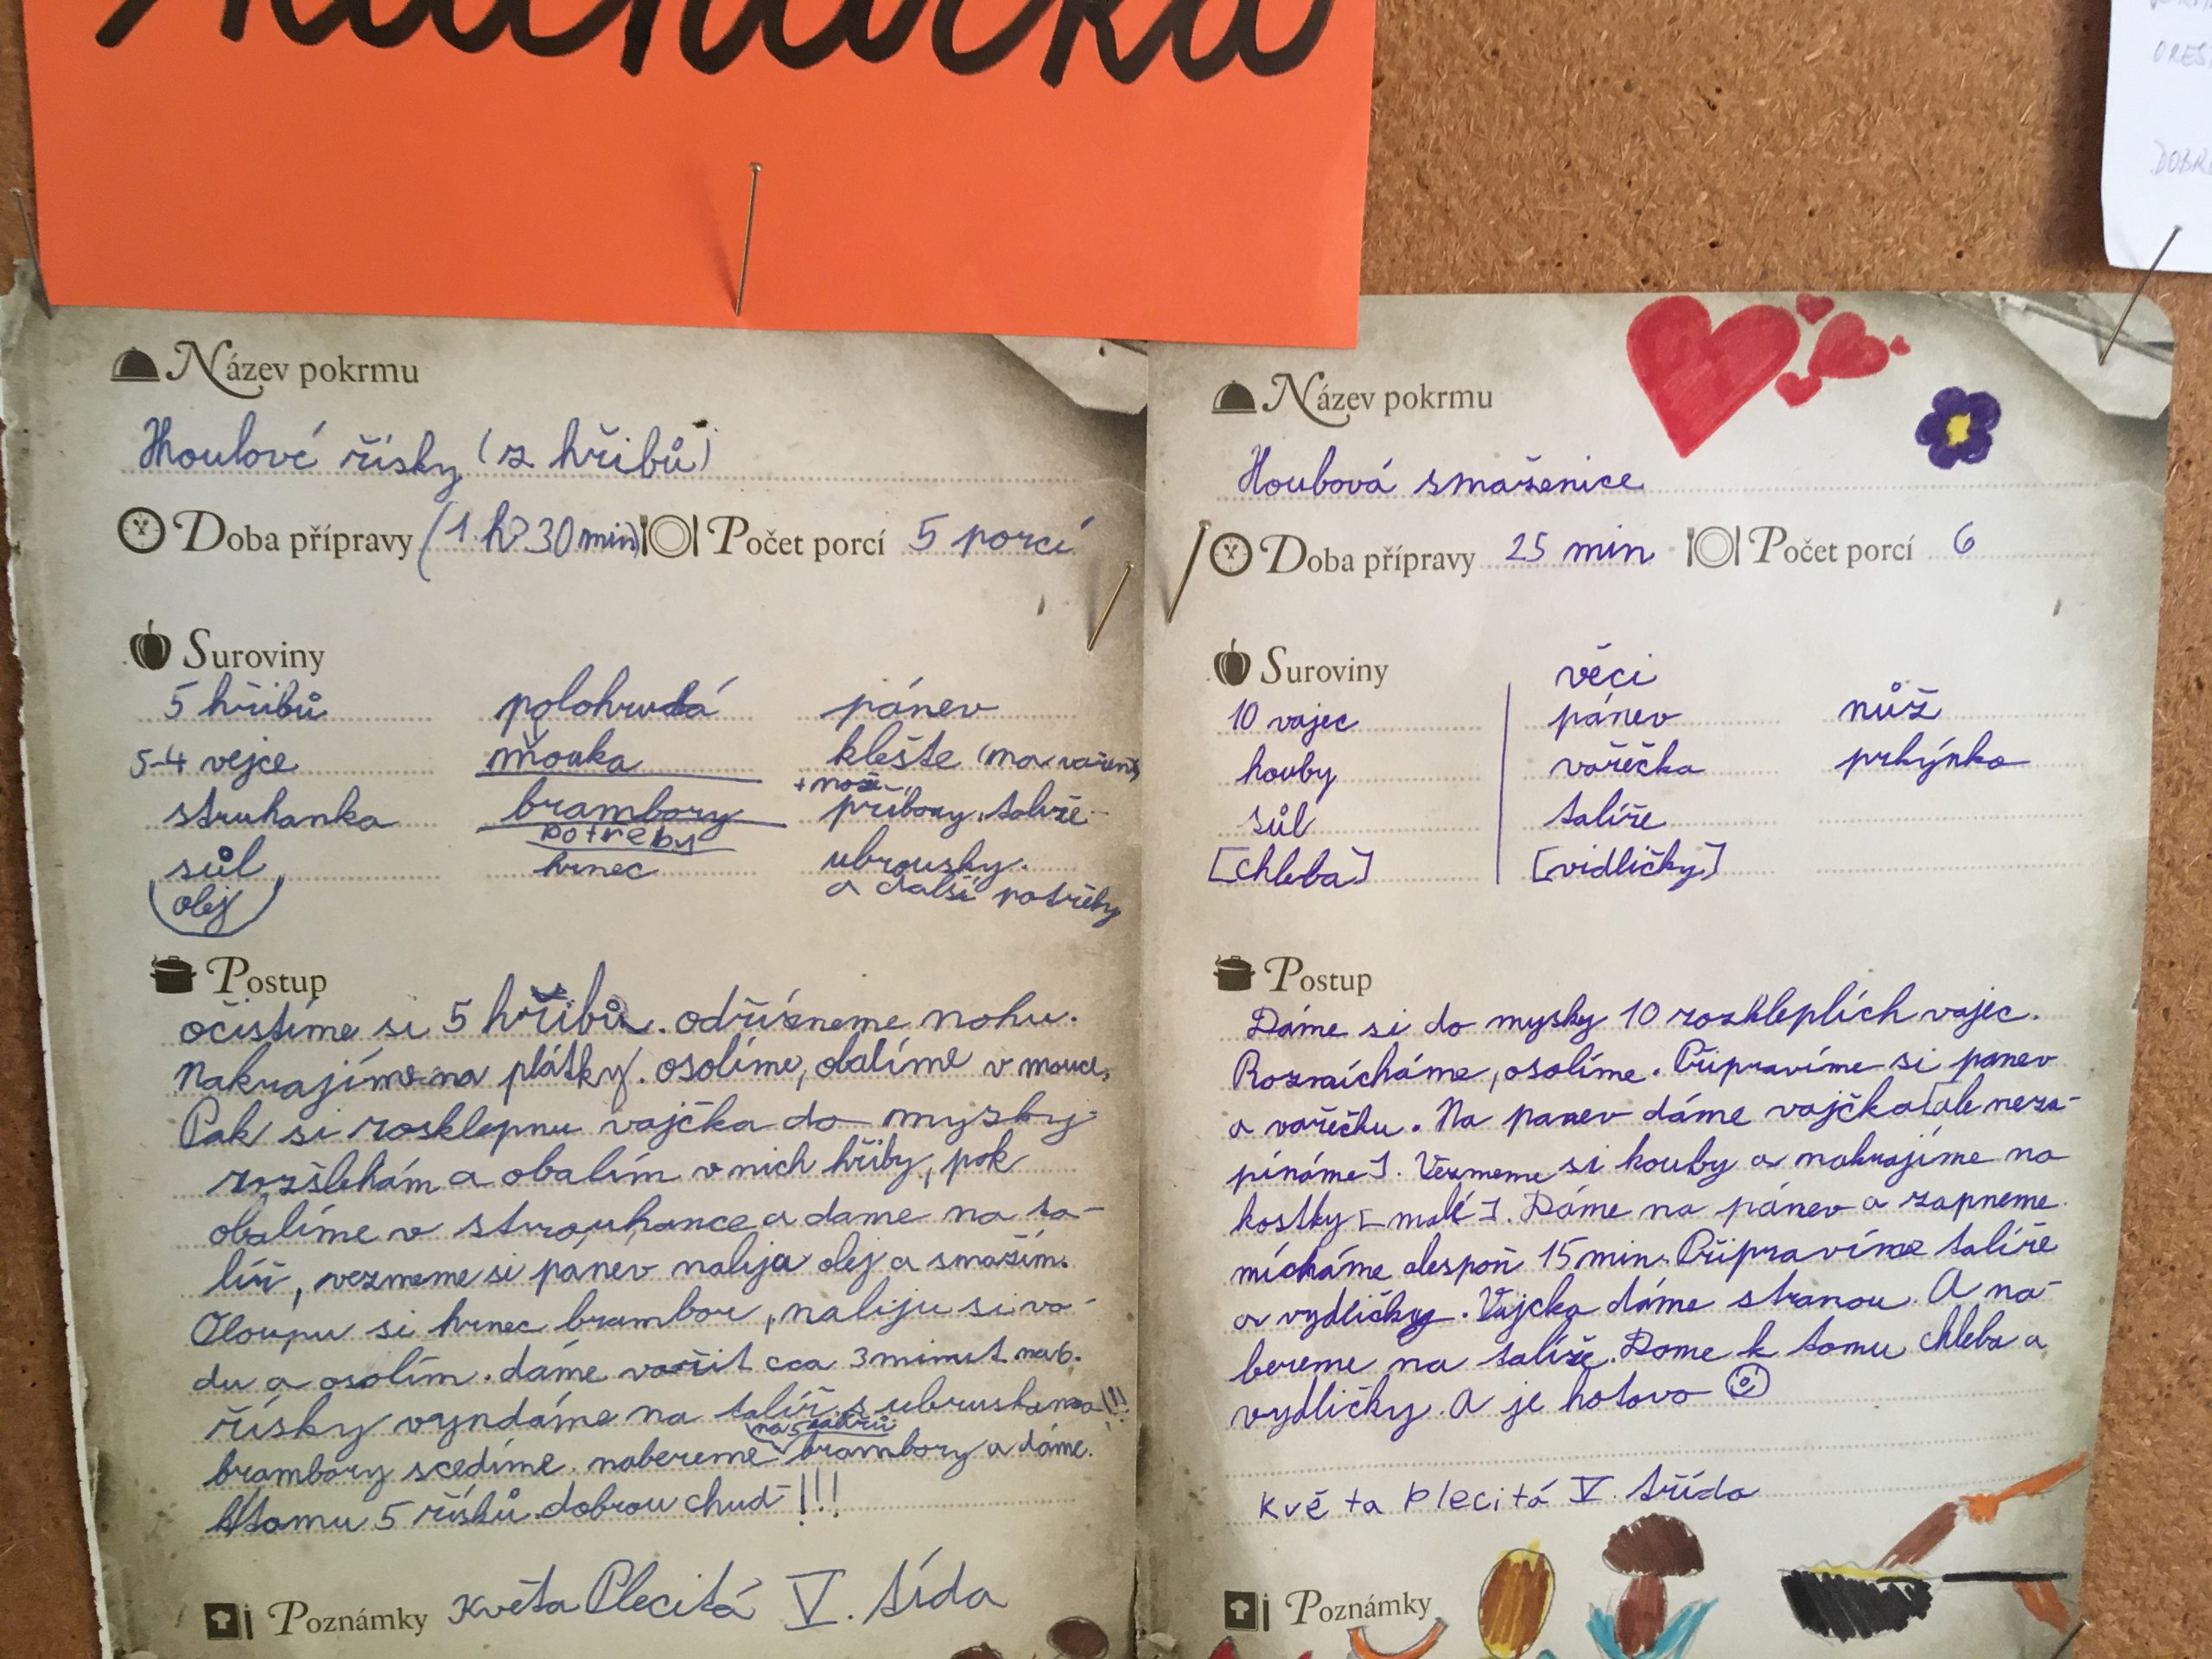 Název pokrmu
Houbové řísky (z hřibů)
Doba přípravy (1 h 30 min) Počet porcí 5 porcí
Suroviny
5 hřibů polohrudá pánev
5-4 vejce mouka klešte (na vařený)
+ nože
struhanka brambory příbory, talíře
potřeby
sůl hrnec ubrousky.
olej a další potřeby
Postup
očistíme si 5 hřibů. odřízneme nohu.
Nakrajíme na plátky. osolíme, obalíme v mouce,
Pak si rosklepnu vajčka do mysky
rozšlehám a obalím v nich hřiby, pak
obalíme v strouhance a dame na ta-
líř, vezmeme si pánev nalija olej a smažím.
Oloupu si hrnec brambor, naliju si vo-
du a osolím. dáme vařit cca 3 minut na 6.
řísky vyndáme na talíř s ubruskama!!!
na 5 talířů
brambory scedíme. nabereme brambory a dáme.
ktomu 5 řísků. dobrou chuď!!!
Poznámky Květa Plecitá V. třída
Název pokrmu
Houbová smaženice
Doba přípravy 25 min Počet porcí 6
Suroviny věci
10 vajec pánev nůž
houby vařečka prkýnko
sůl talíře
[chleba] [vidličky]
Postup
Dáme si do mysky 10 rozkleplích vajec.
Rozmícháme, osolíme. Připravíme si panev
a vařečku. Na panev dáme vajčka [ale neza-
pínáme]. Vezmeme si houby a nakrajíme na
kostky [malé]. Dáme na pánev a zapneme
mícháme alespoň 15 min. Připravíme talíře
a vydličky. Vajcka dáme stranou. A na-
bereme na talíře. Dame k tomu chleba a
vydličky. A je hotovo
Květa Plecitá V. třída
Poznámky